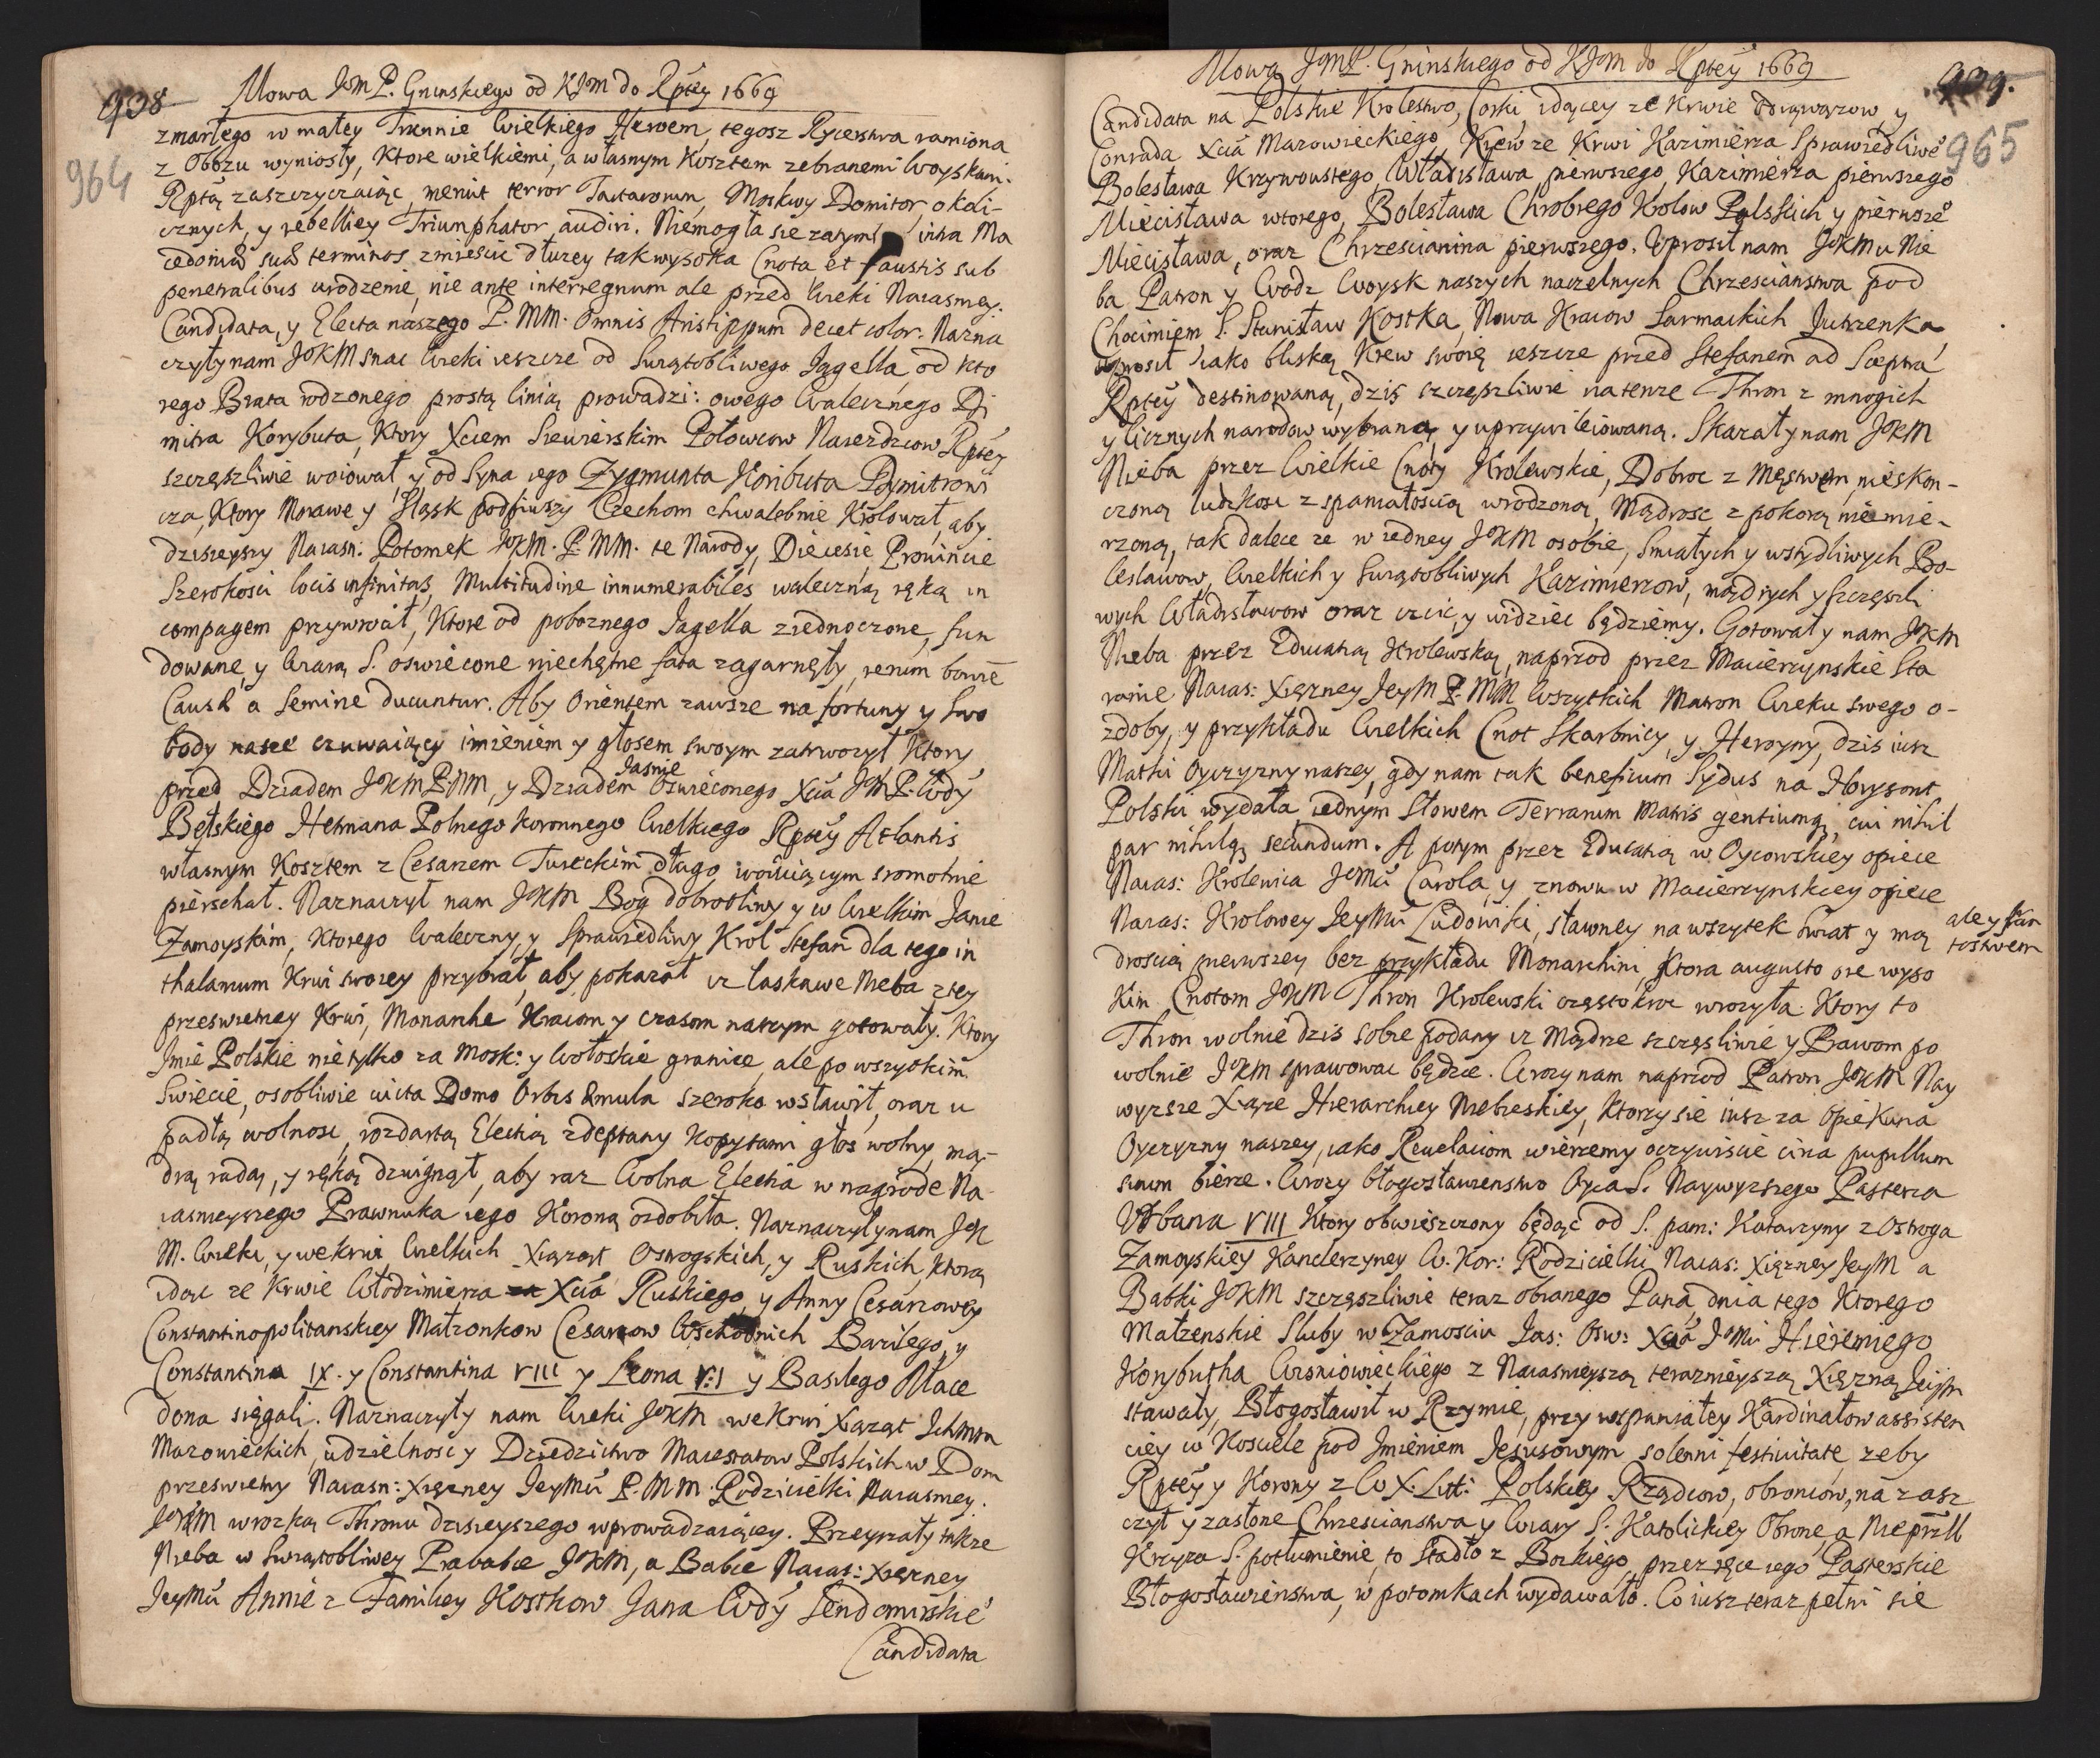 938
Mowa JoM P. Gninskiego od KJoM do Rptey 1669
964
zmarłego w małey Trunnie Wielkiego Heroem, tegosz Rycerstwa ramiona
z Obozu wyniosły, Ktore wielkiemi, a własnym Kosztem zebranemi Woyskami
Rptą zaszczyczaiąc, meruit terror Tartarorum, Moskwy Domitor, okoli-
cznych, y rebelliey Triumphator audiri. Niemogła sie zatym intra Ma
cedoniæ suæ terminos zmiescic dłuzey tak wysoka Cnota et faustis sub
penetralibus urodzenie, nie ante interregnum ale przed Wieki Naiasniey.
Candidata, y Electa naszego P. MM. Omnis Aristippum decet color. Nazna
czyły nam JoKM snac Wieki ieszcze od Swiątobliwego Jagella, od kto
rego Brata rodzonego prostą linią prowadzi: owego Walecznego Di
mitra Korybuta, Ktory Xciem Siewierskim Połowcow Naiezdzcow Rptey
szczęszliwie woiował, y od Syna iego Zygmunta Koributa Dymitrowi
cza, Ktory Morawe y Sląsk podbiwszy Czechom chwalebnie Krolował, aby
dzisieyszy Naiasn: Potomek JoKM. P. MM. te Narody, Diecesie, Prowincie
Szerokosci locis infinitas, Multitudine innumerabiles waleczną ręką in
compagem przywrocił, Ktore od poboznego Jagella ziednoczone, fun
dowane, y Wiarą S. oswiecone niechętne fata zagarnęły, rerum
Causæ a Semine ducuntur. Aby Orientem zawsze na fortuny y Swo
body nasze czuwaiący imieniem y głosem swoym zatrwozył Ktory
przed Dziadem JoKM P. MM, y Dziadem Jasnie Oswieconego Xcia JoM P. Wdy
Bełskiego Hetmana Polnego Koronnego Wielkiego Rptey Atlantis
własnym Kosztem z Cesarzem Tureckim długo woiuiącym sromotnie
pierschał. Naznaczył nam JoKM Bog dobrotliwy y w Wielkim Janie
Zamoyskim, Ktorego Waleczny, y Sprawiedliwy Krol Stefan dla tego in
thalamum Krwi swoiey przybrał, aby pokazał iz laskawe Nieba z tey
przeswietney Krwi, Monarche Kraiom y czasom naszym gotowały. Ktory
Imie Polskie nie tylko za Mosk: y Wołoskie granice, ale po wszystkim
Swiecie, osobliwie victa Domo Orbis æmula szeroko wsławił, oraz u
padłą wolnosc, rozdartą Elekcią zdeptany Kopytami głos wolny, mą-
drą radą, y ręką dzwignął, aby raz Wolna Elekcia w nagrode Na
iasnieyszego Prawnuka iego Koroną ozdobiła. Naznaczyły nam JoK
M. Wieki, y we krwi Wielkich Xiąząt Ostrogskich, y Ruskich, Ktorą
idąc ze Krwie Włodzimierza Xcia Ruskiego, y Anny Cesarzowey
Constantinopolitanskiey Małzonkow Cesarzow Wschodnich Bazilego, y
Constantina IX. y Constantina VIII y Leona VI y Basilego Mace
dona sięgali. Naznaczyły nam Wieki JoKM we Krwi Xiąząt Ichmm
Mazowieckich, udzielnosc y Dziedzictwo Maiestatow Polskich w Dom
przeswietny Naiasn: Xięzney JeyMci P. M M. Rodzicielki Naiasniey.
JoKM wrozką Thronu dzisieyszego wprowadzaiącey. Przeyrzały takze
Nieba w Swiątobliwey Prababce JoKM, a Babce Naias: Xięzney
JeyMci Annie z Familiey Kostkow Jana Wdy Sendomirskie
Candidata
Mowa JoM P. Gninskiego od KJoM do Rptey 1669
939.
965
Candidata na Polskie Krolestwo, Corki, idącey ze Krwie y
Conrada Xcia Mazowieckiego, Krew ze Krwi Kazimierza Sprawiedliwe
Bolesława Krzywoustego, Władisława pierwszego, Kazimierza pierwszego
Miecisława wtorego, Bolesława Chrobrego Krolow Polskich y pierwsze
Miecisława, oraz Chrzescianina pierwszego. Uprosił nam JoKM u Nie
ba Patron y Wodz Woysk naszych naczelnych Chrzescianstwa pod
Chocimiem S. Stanisław Kostka, Nowa Kraiow Sarmackich Jutrzenka,
uprosił iako bliską Krew swoię ieszcze przed Stefanem ad Sceptra
Rptey destinowaną, dzis szczęszliwie na tenze Thron z mnogich
y licznych narodow wybraną y uprzywileiowaną. Skazały nam JoKM
Nieba przez Wielkie Cnoty Krolewskie, Dobroc z Męstwem, nieskon-
czoną ludzkosc z spaniałoscią wrodzoną, Mądrosc z pokorą niemie-
rzoną, tak dalece ze w iedney JoKM osobie, smiałych y wstydliwych Bo-
leslawow, Wielkich y Swiątobliwych Kazimierzow, mądrych y szczęsli
wych Władisławow oraz czcic, y widziec będziemy. Gotowały nam JoKM
Nieba przez Educatią Krolewską, naprzod przez Macierzynskie Sta
ranie Naias: Xięzney JeyM P. MM Wszytkich Matron Wieku swego o-
zdoby, y przykładu Wielkich Cnot Skarbnicy, y Heroyny, dzis iusz
Matki Oyczyzny naszey, gdy nam tak beneficum Sydus na Horyzont
Polski wydała, iednym Słowem Terrarum Matris gentiumq, cui nihil
par nihilq secundum. A potym przez Educatią w Oycowskiey opiece
Naias: Krolewica JeMci Carola, y znowu w Macierzynskiey opiece
Naias: Krolowey JeyMci Ludowiki, sławney na wszytek Swiat y mą
ale y Pan
stwem
droscią pierwszey bez przykładu Monarchini, Ktora augusto ore wyso
Kim Cnotom JoKM Thron Krolewski częstokroc wrozyła. Ktory to
Thron wolnie dzis sobie podany iz Mądrze szczęsliwie y Prawom po
wolnie JoKM sprawowac będzie. Wrozy nam naprzod Patron JoKM Nay
wyzsze Xiąze Hierarchiey Niebieskiey, Ktory sie iusz za Opiekuna
Oyczyzny naszey, iako Rewelaciom wierzemy oczywiscie circa pupillum
suum bierze. Wrozy błogosławienstwo Oyca S. Naywyzszego Pasterza
Urbana VIII Ktory obwieszczony będąc od S. pam: Katarzyny z Ostroga
Zamoyskiey Kanclerzyney W. Kor: Rodzicielki Naias: Xięzney JeyM a
Babki JoKM szczęszliwie teraz obranego Pana, dnia tego Ktorego
Małzenskie Sluby w Zamosciu Jas: Osw: Xcia JoMci Hieremiego
Korybutha Wisniowieckiego z Naiasnieyszą terazniejszą Xięzną JeyM
stawały, Błogosławił w Rzymie, przy wspaniałey Kardinałow assisten
ciey w Kosciele pod Imieniem Jesusowym solenni festivitate, zeby
Rptey y Korony z W X. Litt: Polskiey Rządcow, obroncow, na zasz
czyt y zasłone Chrzescianstwa y Wiary S. Katolickiey Obrone, a Nieprzll
Krzyza S. potłumienie, to Stadło z Boskiego, przez ręce iego Pasterskie
Błogosławienstwa, w potomkach wydawało. Co iusz teraz pełni sie